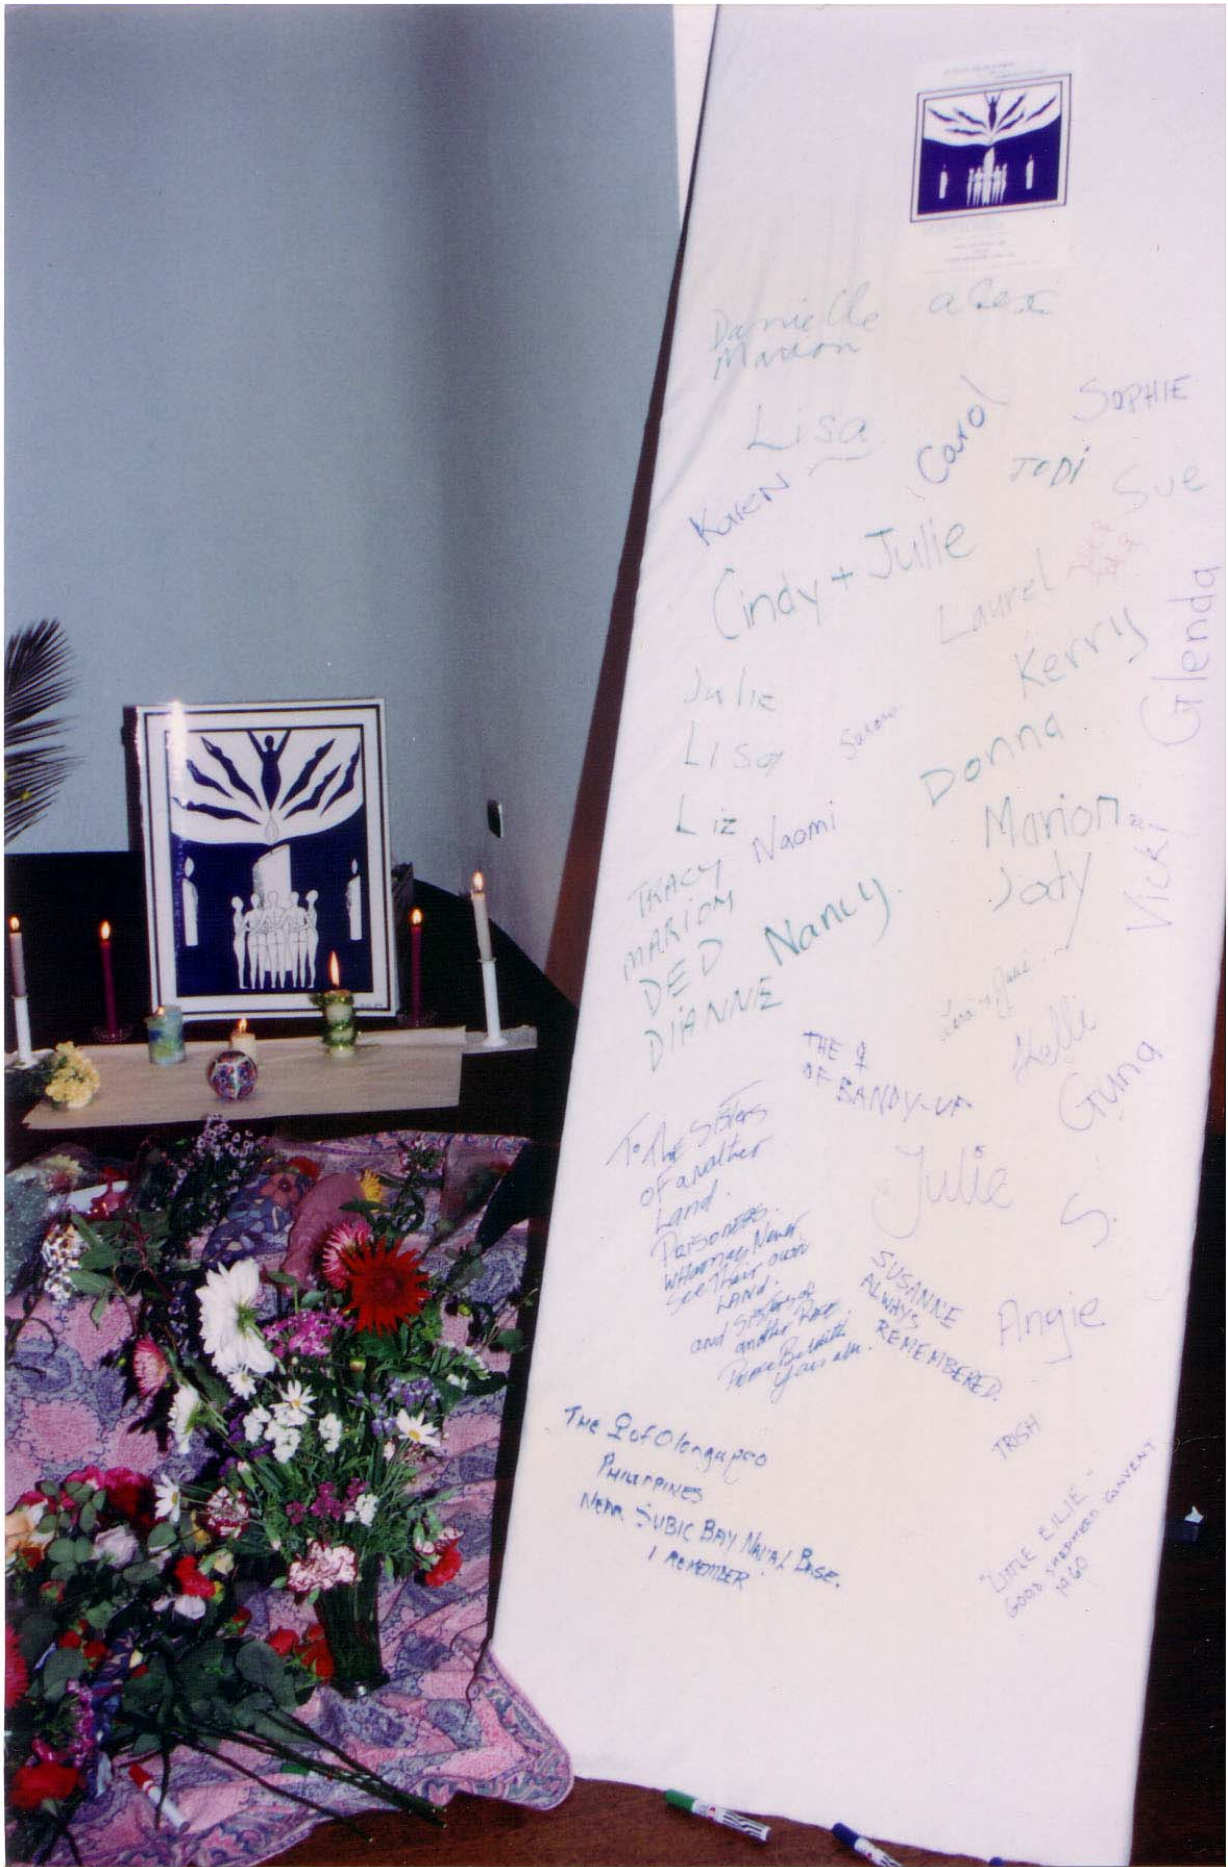 Danielle
Marion
Alex
Lisa
Carol
SOPHIE
Karen
JODi
Sue
Cindy + Julie
Laurel
Glenda
Julie
Kerry
Lisa
Donna
Liz
Naomi
Marion
Vicki
TRACY
MARION
Jody
DED
Nancy.
DIANNE
THE ♀
OF BANDY-UP
Kelli
Guna
To The SISTERS
OF another
Land.
PRISONERS.
WHO may Never
See Their own
LAND.
and SISTERS of
another Race.
Peace Be with
You all.
Julie
S.
SUSANNE
ALWAYS
REMEMBERED.
Angie
THE ♀ of Olongapoo
PHILIPPINES
Near SUBIC BAY NAVAL BASE.
I REMEMBER
TRISH
"LITTLE EILIE"
GOOD SHEPHERD CONVENT
1960